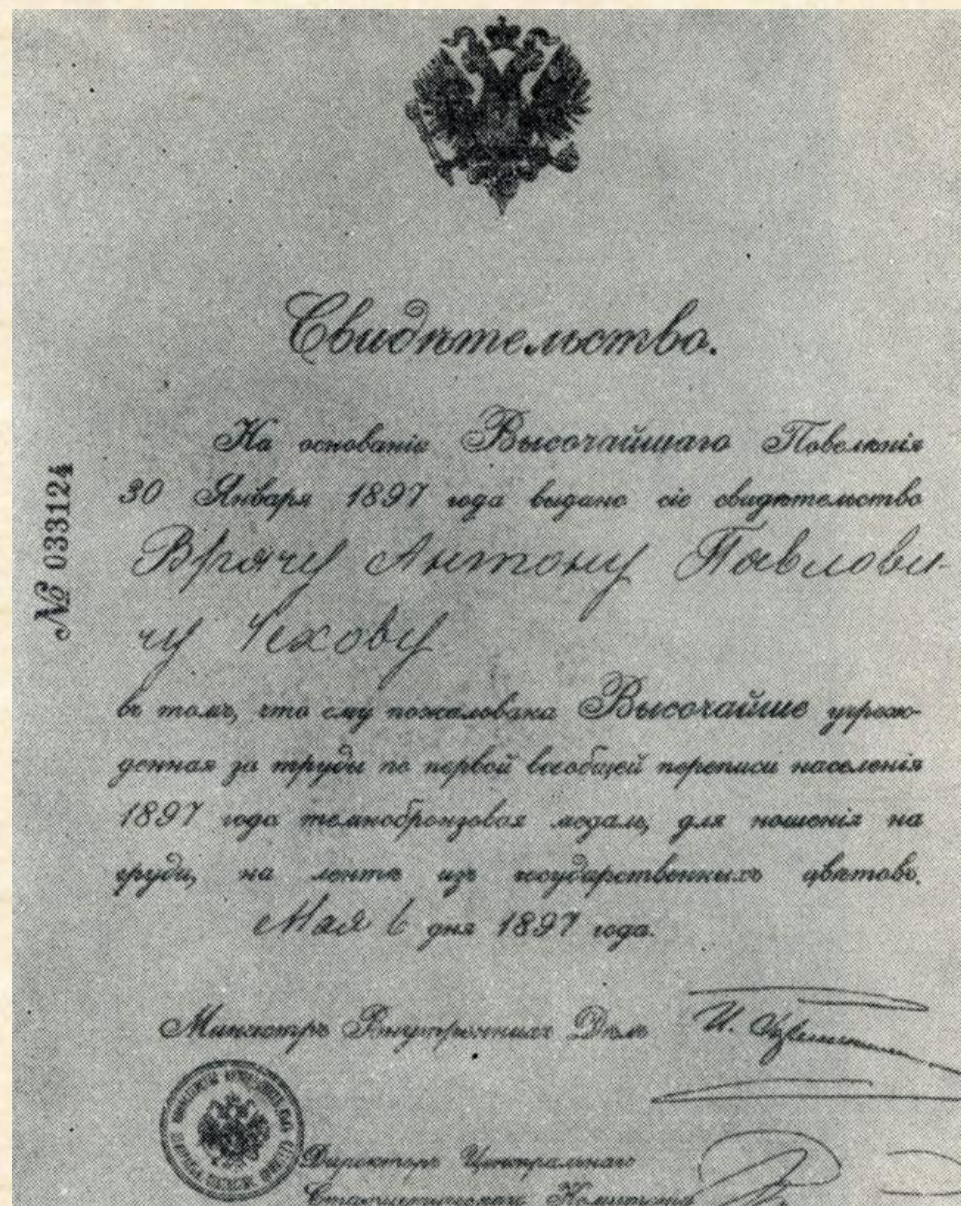 Свидѣтельство.
На основаніи Высочайшаго Повелѣнія
30 Января 1897 года выдано сіе свидѣтельство
Врачу Антону Павлови-
чу Чехову
въ томъ, что ему пожалована Высочайше учреж-
денная за труды по первой всеобщей переписи населенія
1897 года темнобронзовая медаль, для ношенія на
груди, на лентѣ изъ государственныхъ цвѣтовъ.
Мая 6 дня 1897 года.
№ 033124
Министръ Внутреннихъ Дѣлъ
Директоръ Центральнаго
Статистическаго Комитета